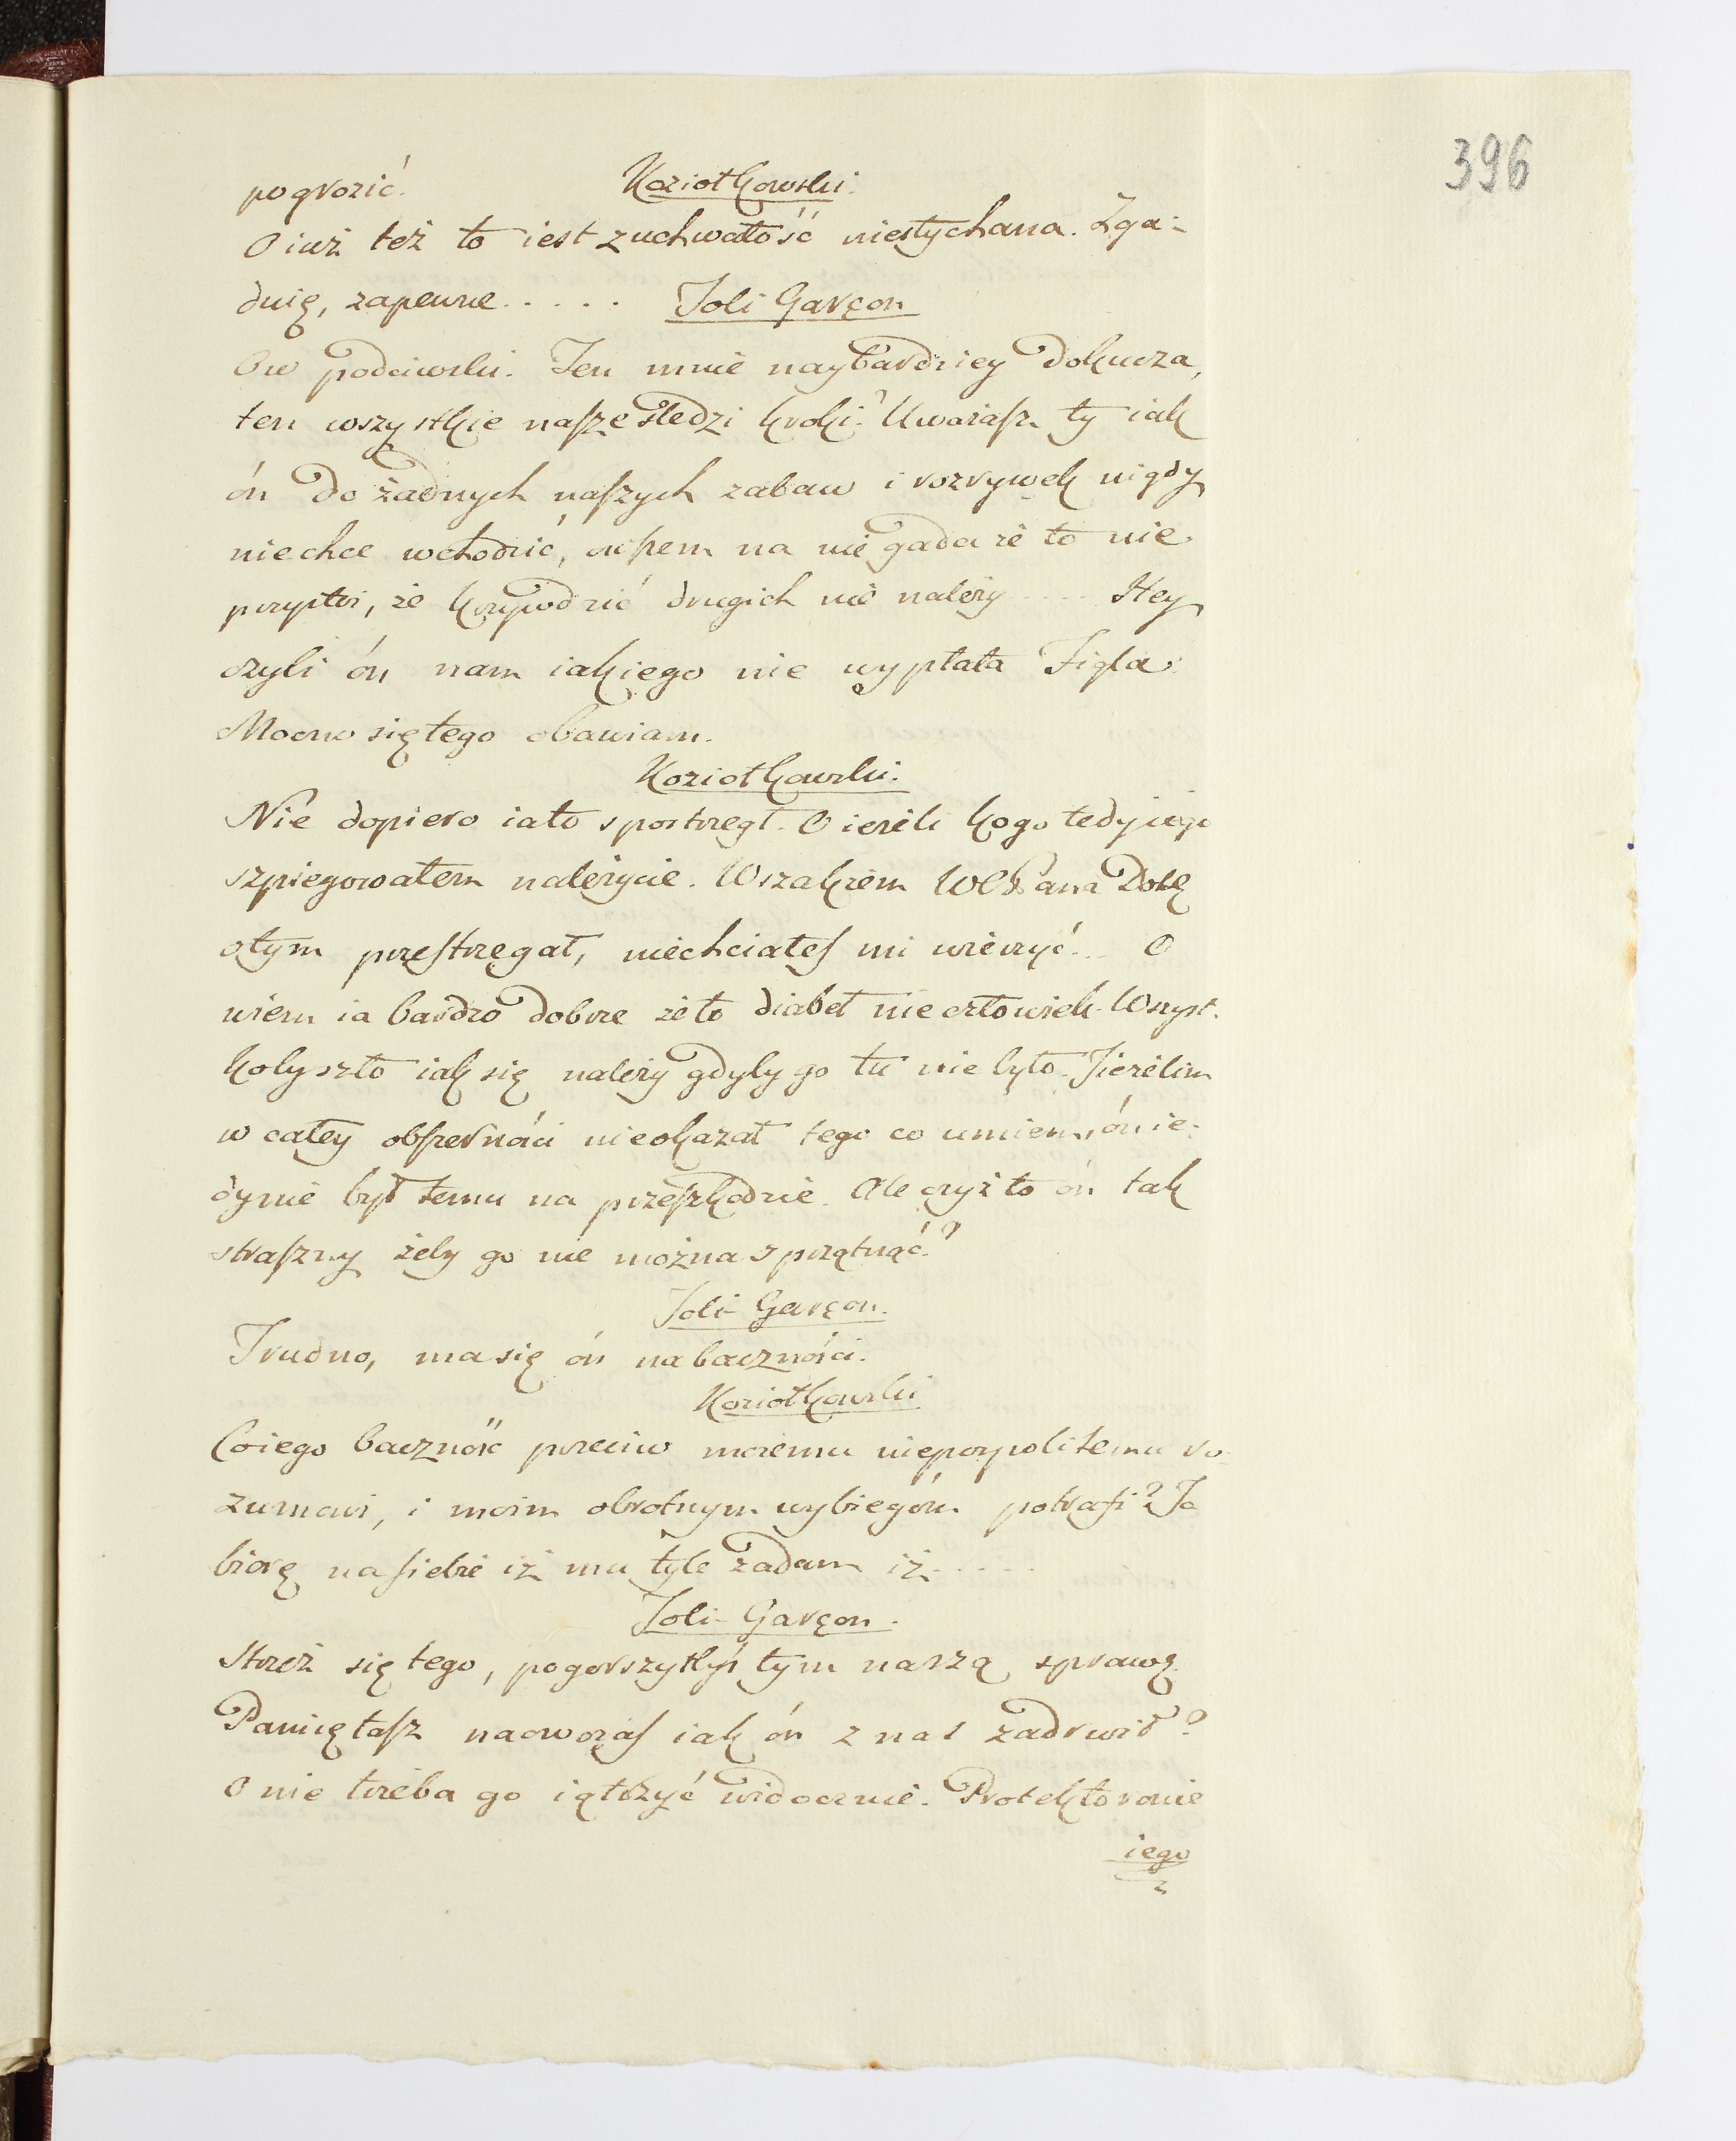 396
pogrozić. Koziołkowski.
O iuż też to iest zuchwałość niesłychana. Zga-
dnię, zapewne..... Joli Garçon
Ow podciwski. Ten mnie naybardziey dokucza,
ten wszystkie nasze śledzi kroki? Uważasz ty iak
ón do żadnych naszych zabaw i rozrywek nigdy
niechce wchodzić, owszem na nie gada że to nie
przystoi, że krzywdzić drugich nie należy .... Hey
czyli ón nam iakiego nie wypłata Figla.
Mocno się tego obawiam.
Koziołkowski.
Nie dopiero ia to spostrzegł. O ieżeli kogo tedy iego
szpiegowałem należycie. Wszakżem Pana Dobę
o tym przestrzegał, niechciałeś mi wierzyć... O
wiem ia bardzo dobrze że to diabeł nie człowiek. Wszyst-
koby szło iak się należy gdyby go tu nie było. Jieżelim
w całey obszerności nieokazał tego co umiem, ón ie-
dynie był temu na przeszkodzie. Ale czyż to ón tak
straszny żeby go nie można sprzątnąć?
Joli-Garçon.
Trudno, ma się ón na baczności.
Koziołkowski
Co iego baczność przeciw moiemu niepospolitemu ro-
zumowi, i moim obrotnym wybiegóm potrafi? Ja
biorę na siebie iż mu tyle zadam iż.....
Joli-Garçon.
Strzeż się tego, pogorszyłbyś tym naszą sprawę.
Pamiętasz naowczas iak ón z nas zadrwił?
O nie trzeba go iątrzyć widocznie. Protektorowie
iego